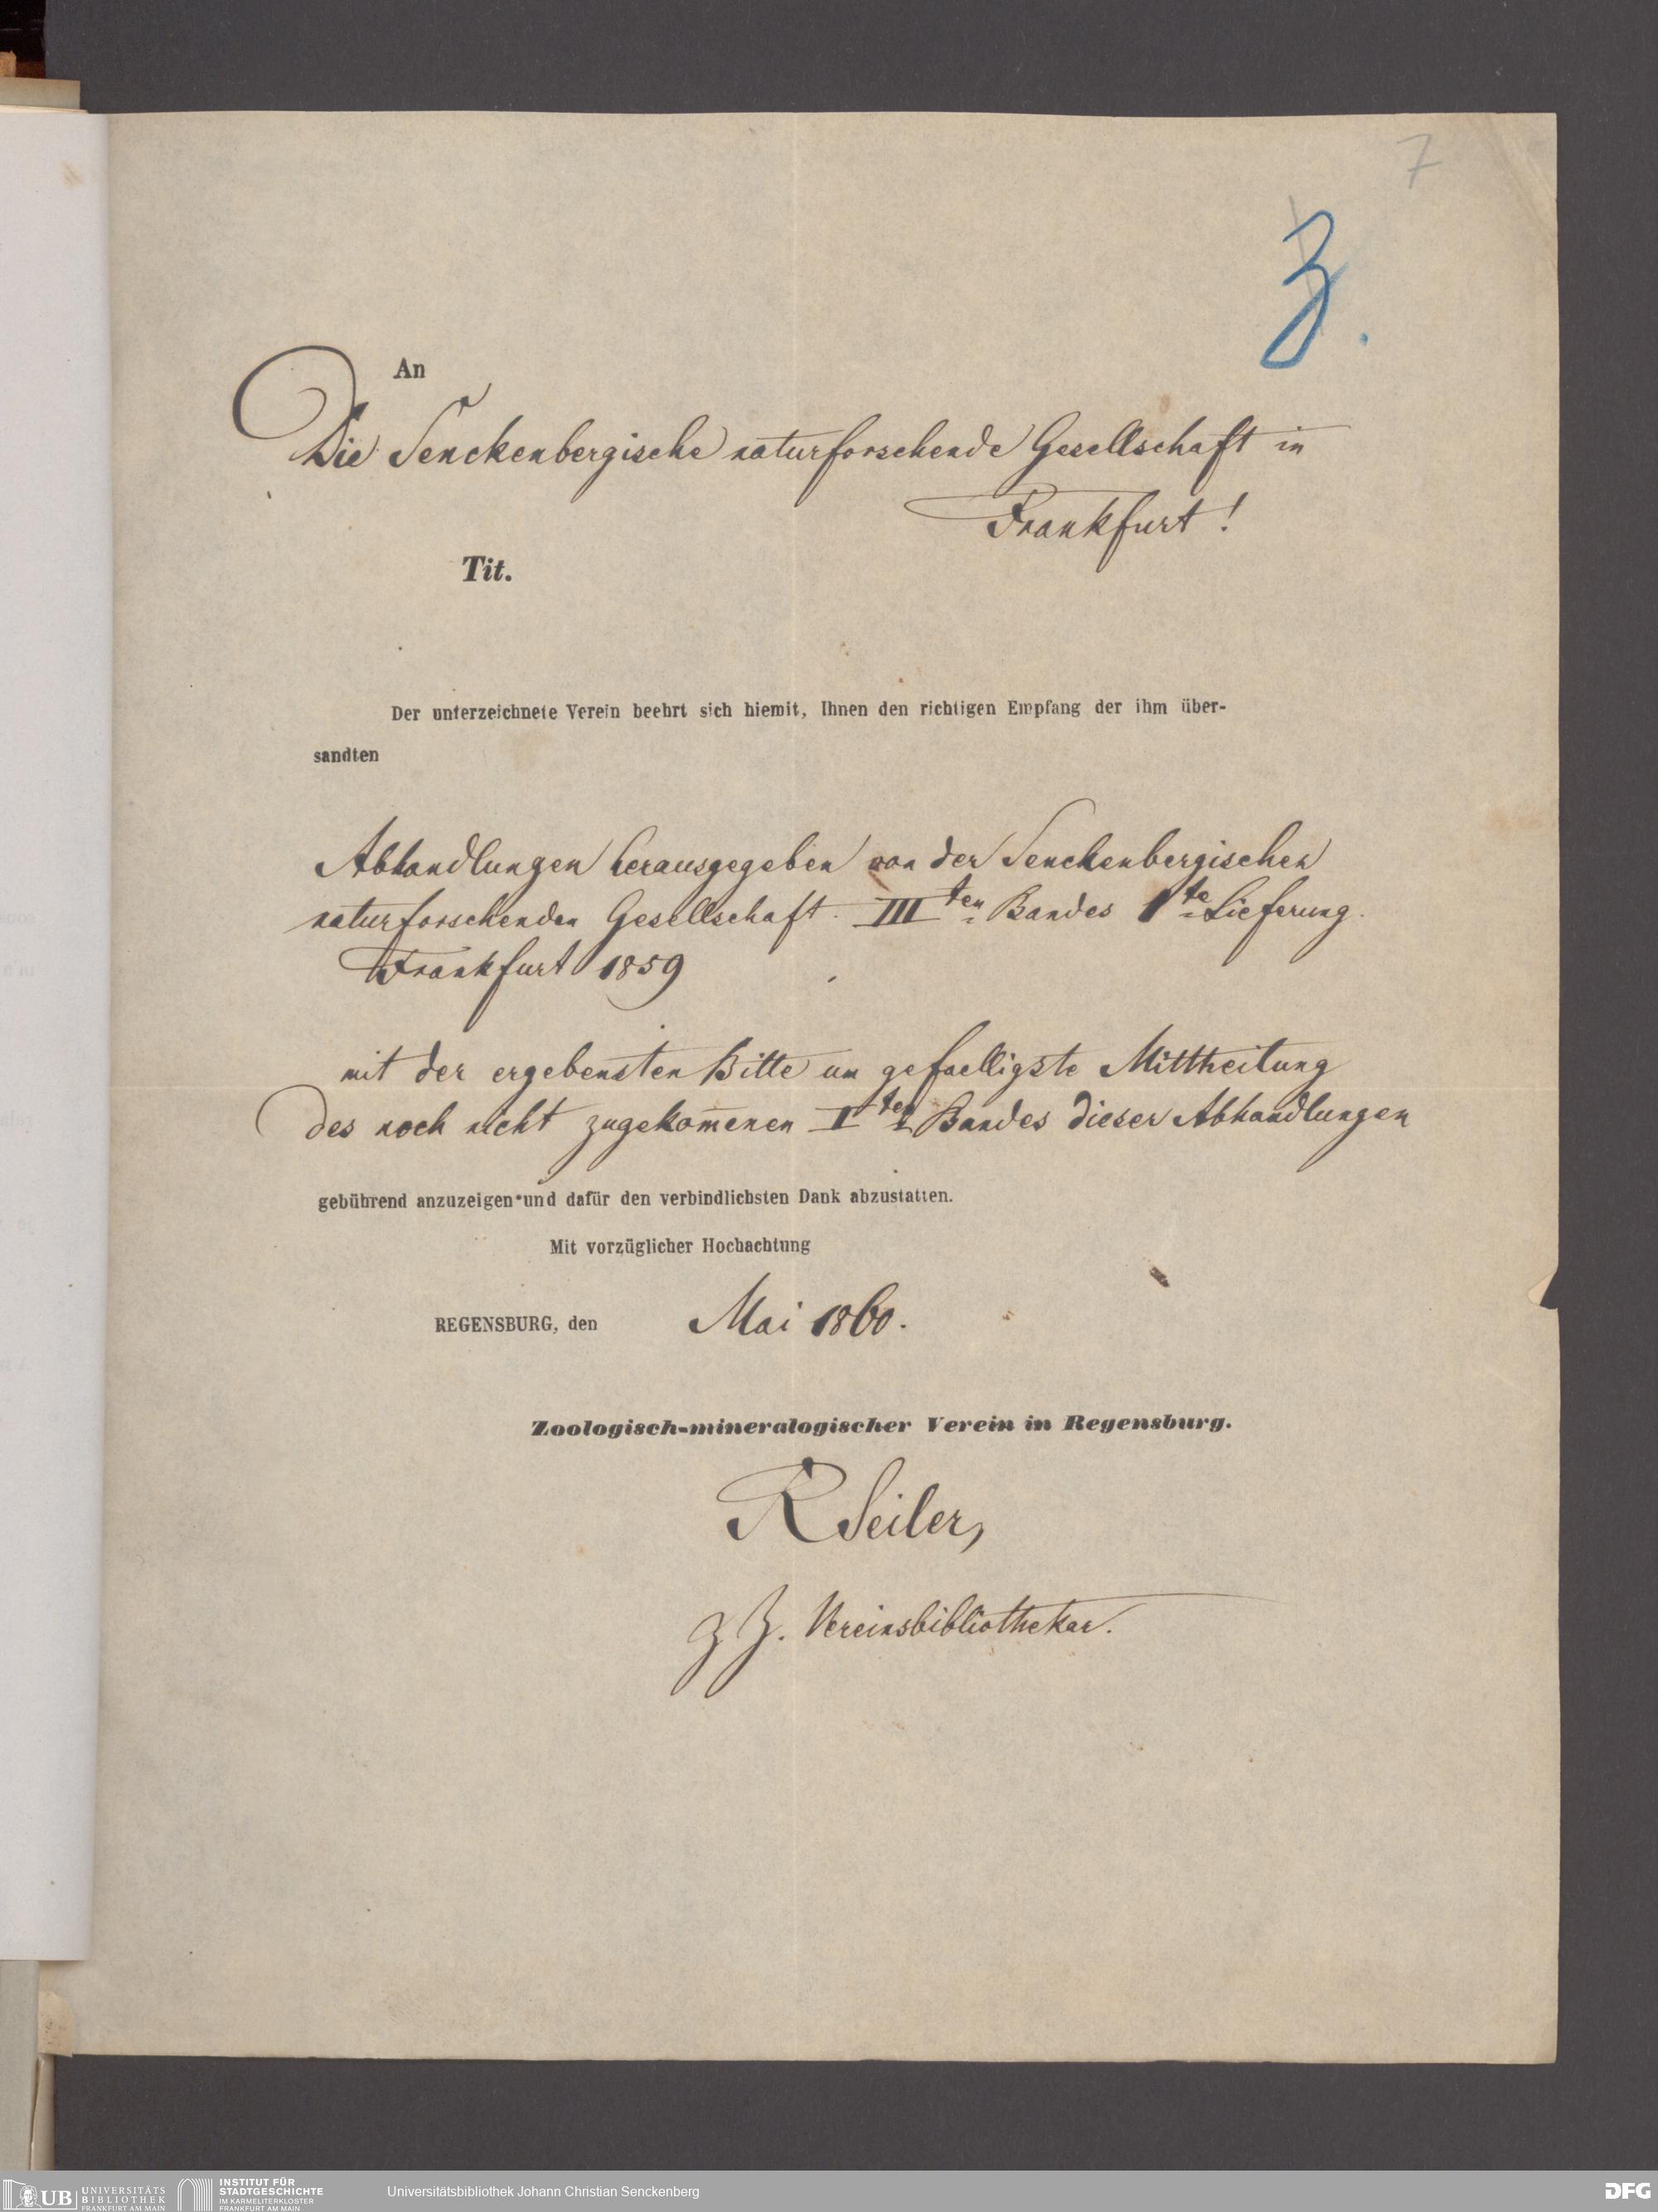 7
Z.
An
Die Senckenbergische naturforschende Gesellschaft in
Frankfurt!
Tit.
Der unterzeichnete Verein beehrt sich hiemit, Ihnen den richtigen Empfang der ihm über-
sandten
Abhandlungen herausgegeben von der Senckenbergischen
naturforschenden Gesellschaft. IIIten Bandes 1te Lieferung.
Frankfurt 1859
mit der ergebensten Bitte um gefaelligste Mittheilung
des noch nicht zugekom̅enen Iten Bandes dieser Abhandlungen
gebührend anzuzeigen und dafür den verbindlichsten Dank abzustatten.
Mit vorzüglicher Hochachtung
REGENSBURG, den Mai 1860.
Zoologisch-mineralogischer Verein in Regensburg.
R Seiler,
z Z. Vereinsbibliothekar.
UB UNIVERSITÄTS
BIBLIOTHEK
FRANKFURT AM MAIN
INSTITUT FÜR
STADTGESCHICHTE
IM KARMELITERKLOSTER
FRANKFURT AM MAIN
Universitätsbibliothek Johann Christian Senckenberg
DFG